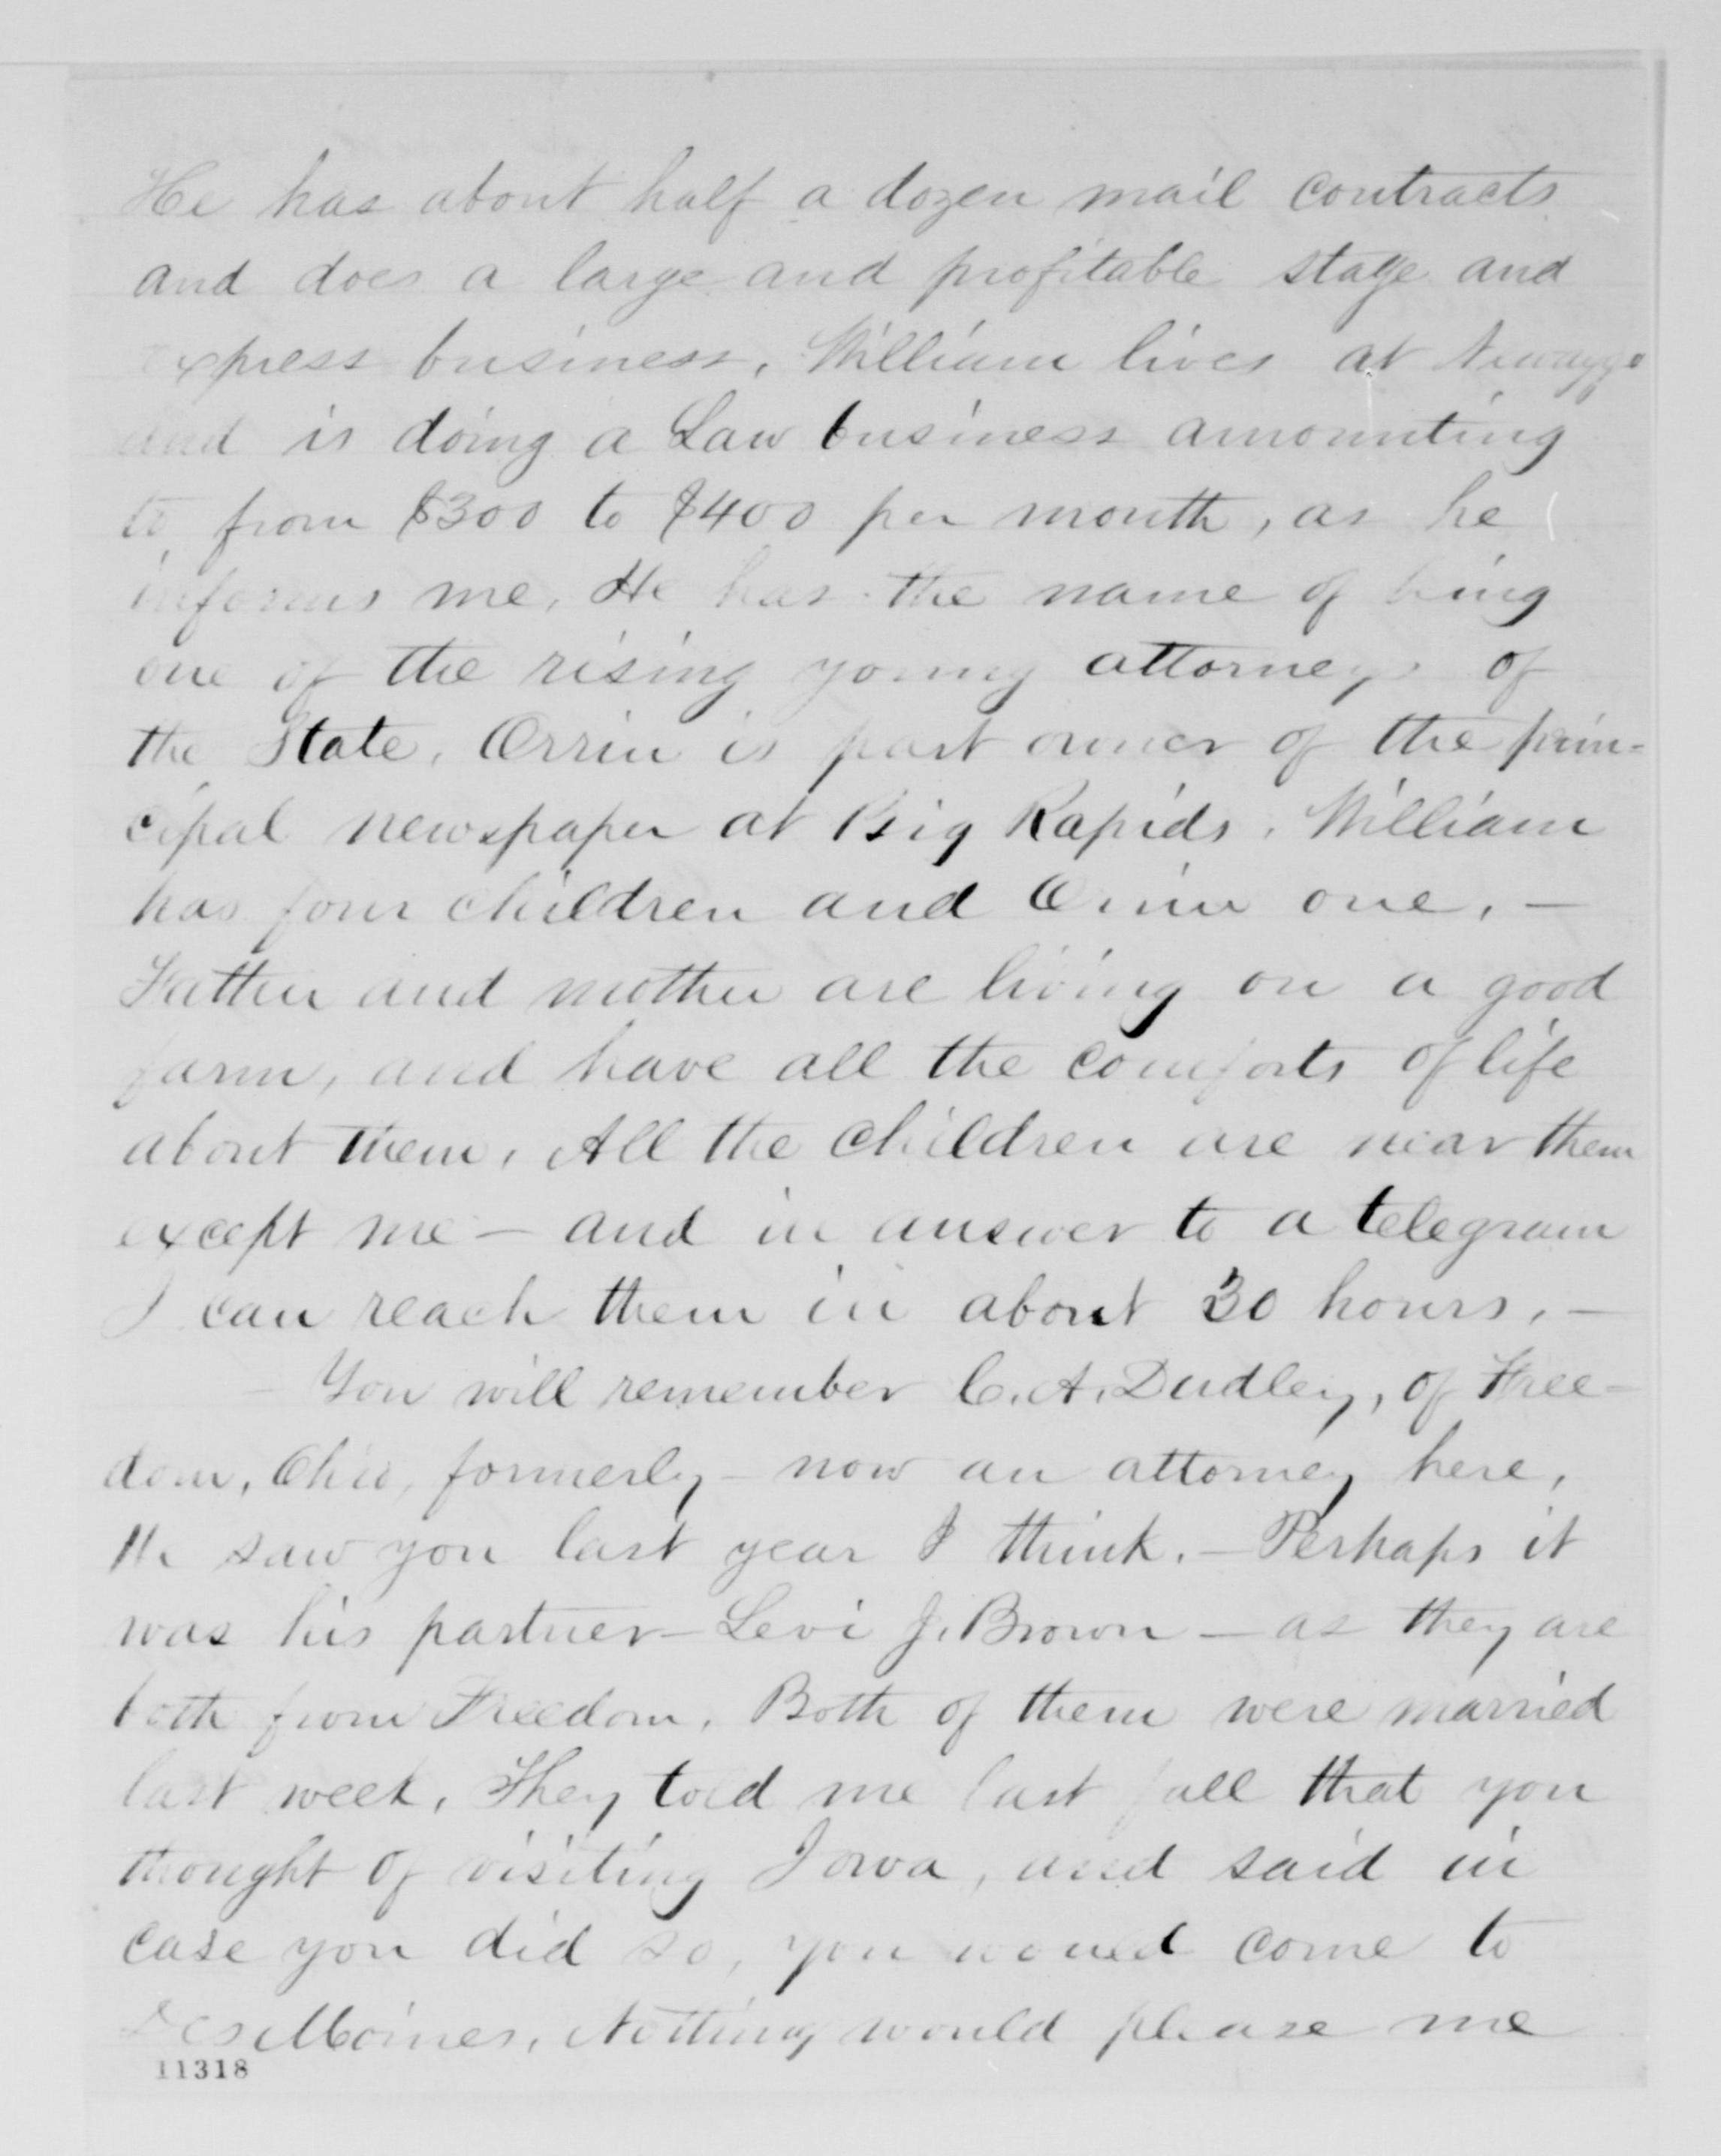 He has about half a dozen mail contracts
and does a large and profitable stage and
express business. William lives at Newaygo
and is doing a Law business amounting
to from $300 to $400 per month, as he
informs me. He has the name of being
one of the rising young attorneys of
the State. Orrin is part owner of the prin-
cipal newspaper at Big Rapids. William
has four children and Orrin one. —
Father and mother are living on a good
farm, and have all the comforts of life
about them. All the children are near them
except me — and in answer to a telegram
I can reach them in about 30 hours. —
— You will remember C. A. Dudley, of Free-
dom, Ohio, formerly — now an attorney here.
He saw you last year I think. — Perhaps it
was his partner — Levi J. Brown — as they are
both from Freedom. Both of them were married
last week. They told me last fall that you
thought of visiting Iowa, and said in
case you did so, you would come to
Des Moines. Nothing would please me
11318